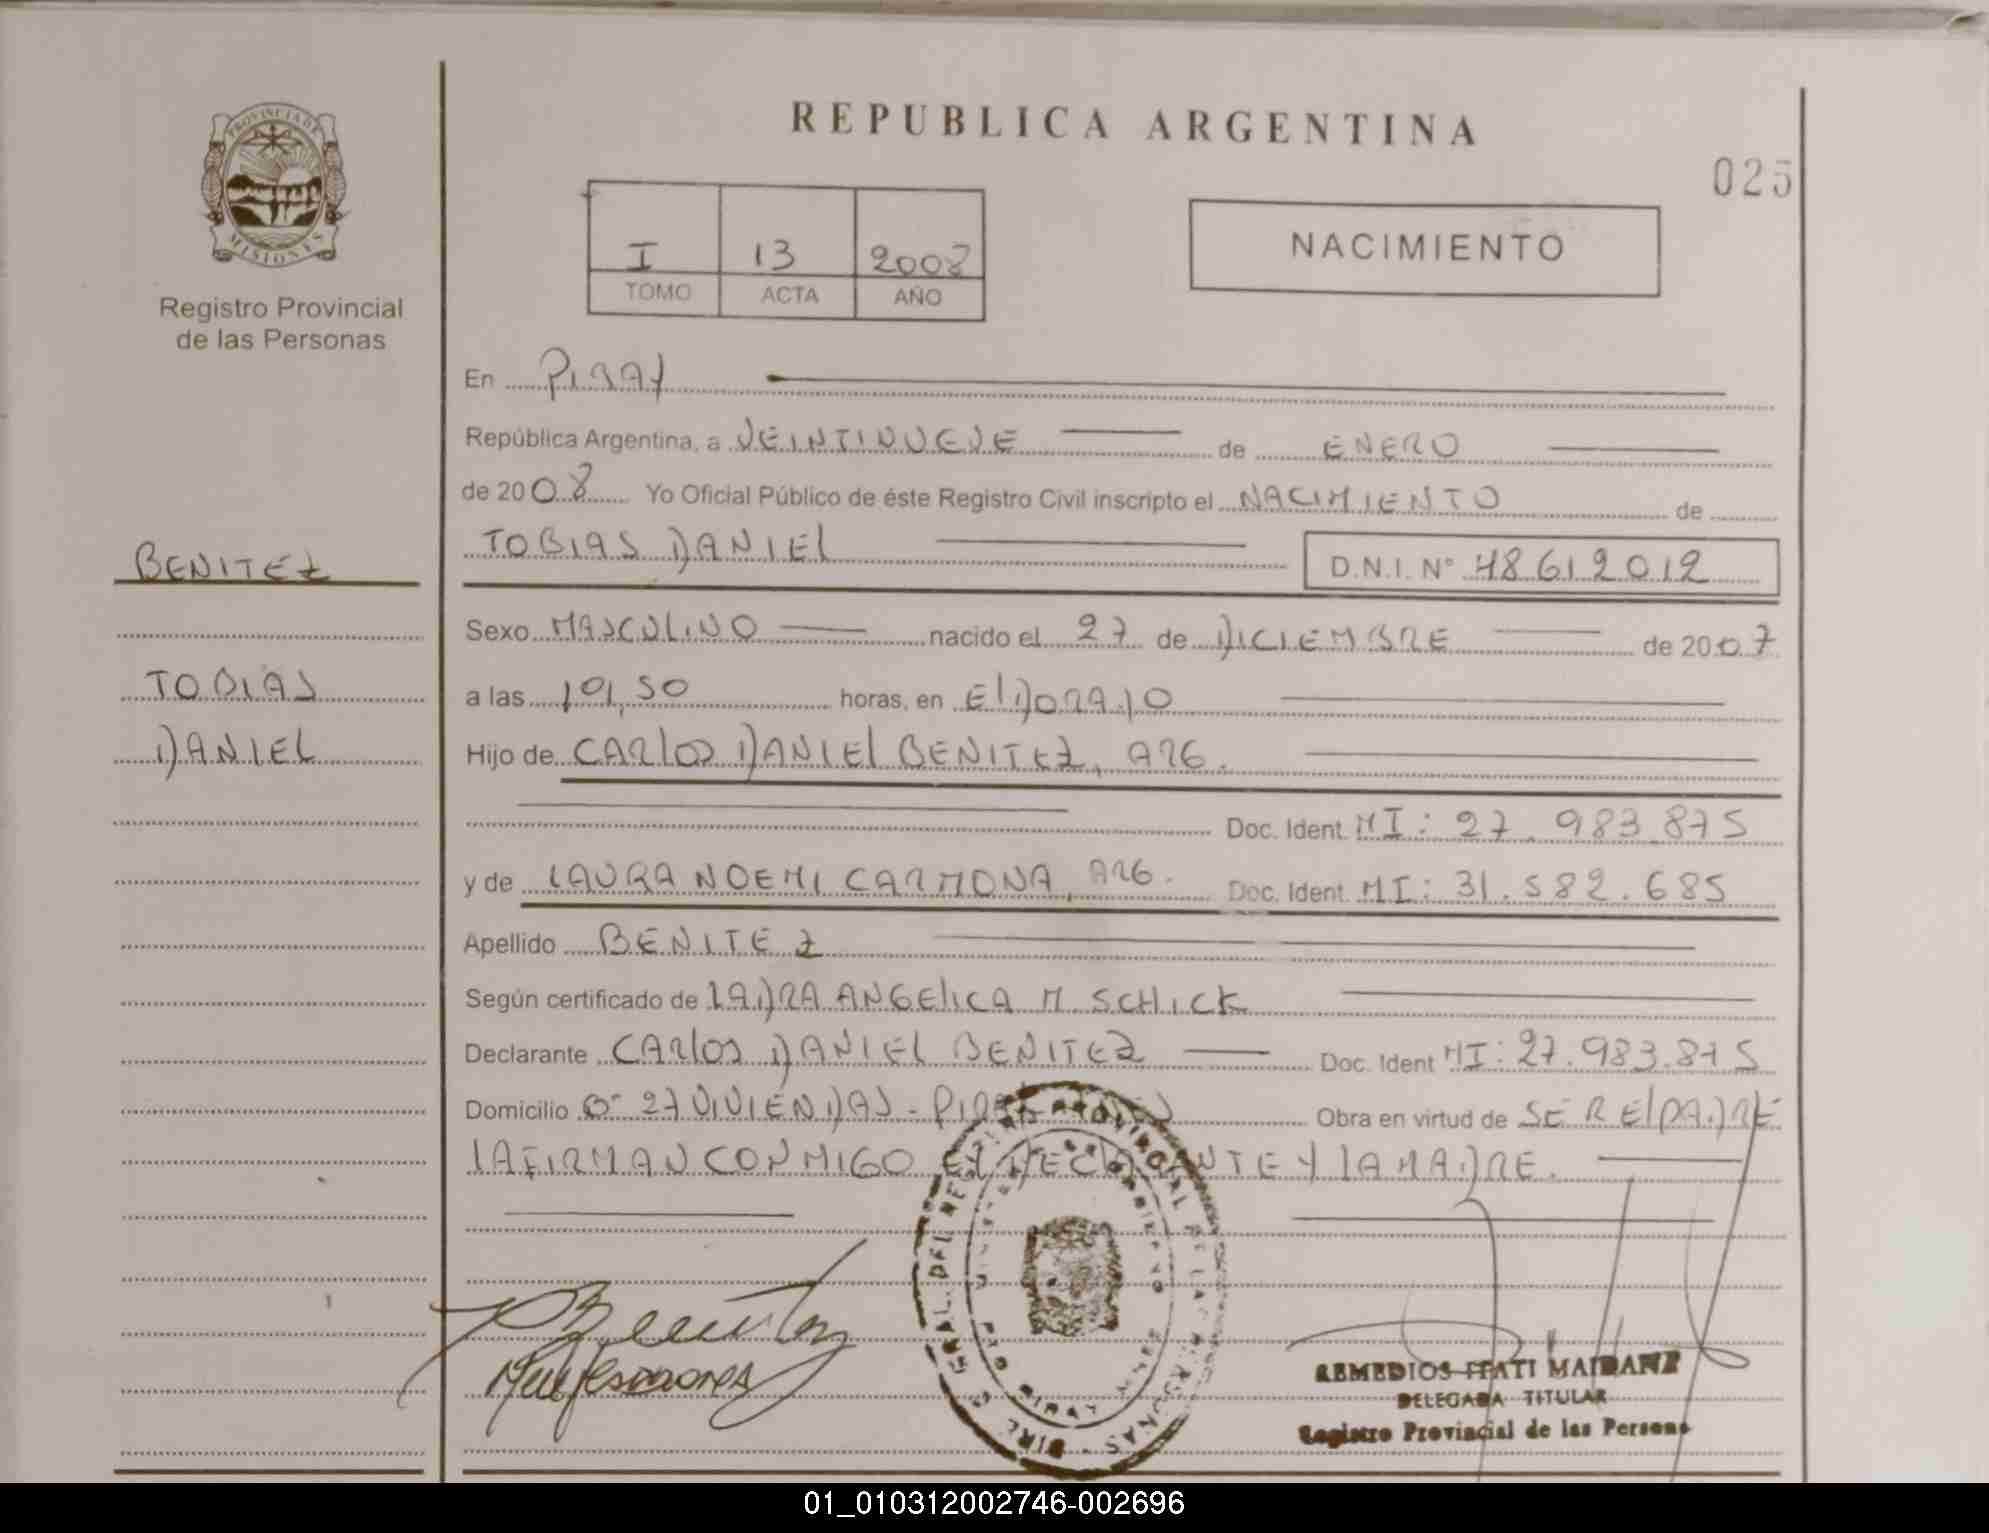 REPUBLICA ARGENTINA
025
PROVINCIA DE
MISIONES
Registro Provincial
de las Personas
I 13 2008
TOMO ACTA AÑO
NACIMIENTO
En PIRAY
República Argentina, a VEINTINUEVE de ENERO
de 2008 Yo Oficial Público de éste Registro Civil inscripto el NACIMIENTO de
BENITEZ
TOBIAS DANIEL D.N.I. Nº 48612012
Sexo MASCULINO nacido el 27 de DICIEMBRE de 2007
TOBIAS
a las 10,50 horas, en ElDORADO
DANIEL
Hijo de CARlOS DANIEl BENITEZ, ARG.
Doc. Ident. MI: 27.983.875
y de LAURA NOEMI CARMONA, ARG. Doc. Ident. MI: 31.582.685
Apellido BENITEZ
Según certificado de LA DRA ANGElICA M. SCHICK
Declarante CARlOS DANIEL BENITEZ Doc. Ident MI: 27.983.875
Domicilio 27 VIVIENDAS - Obra en virtud de SER El PADRE
LA FIRMAN CONMIGO El DECLARANTE Y LA MADRE.
REMEDIOS ITATI
DELEGADA TITULAR
Registro Provincial de las Persona
01_010312002746-002696